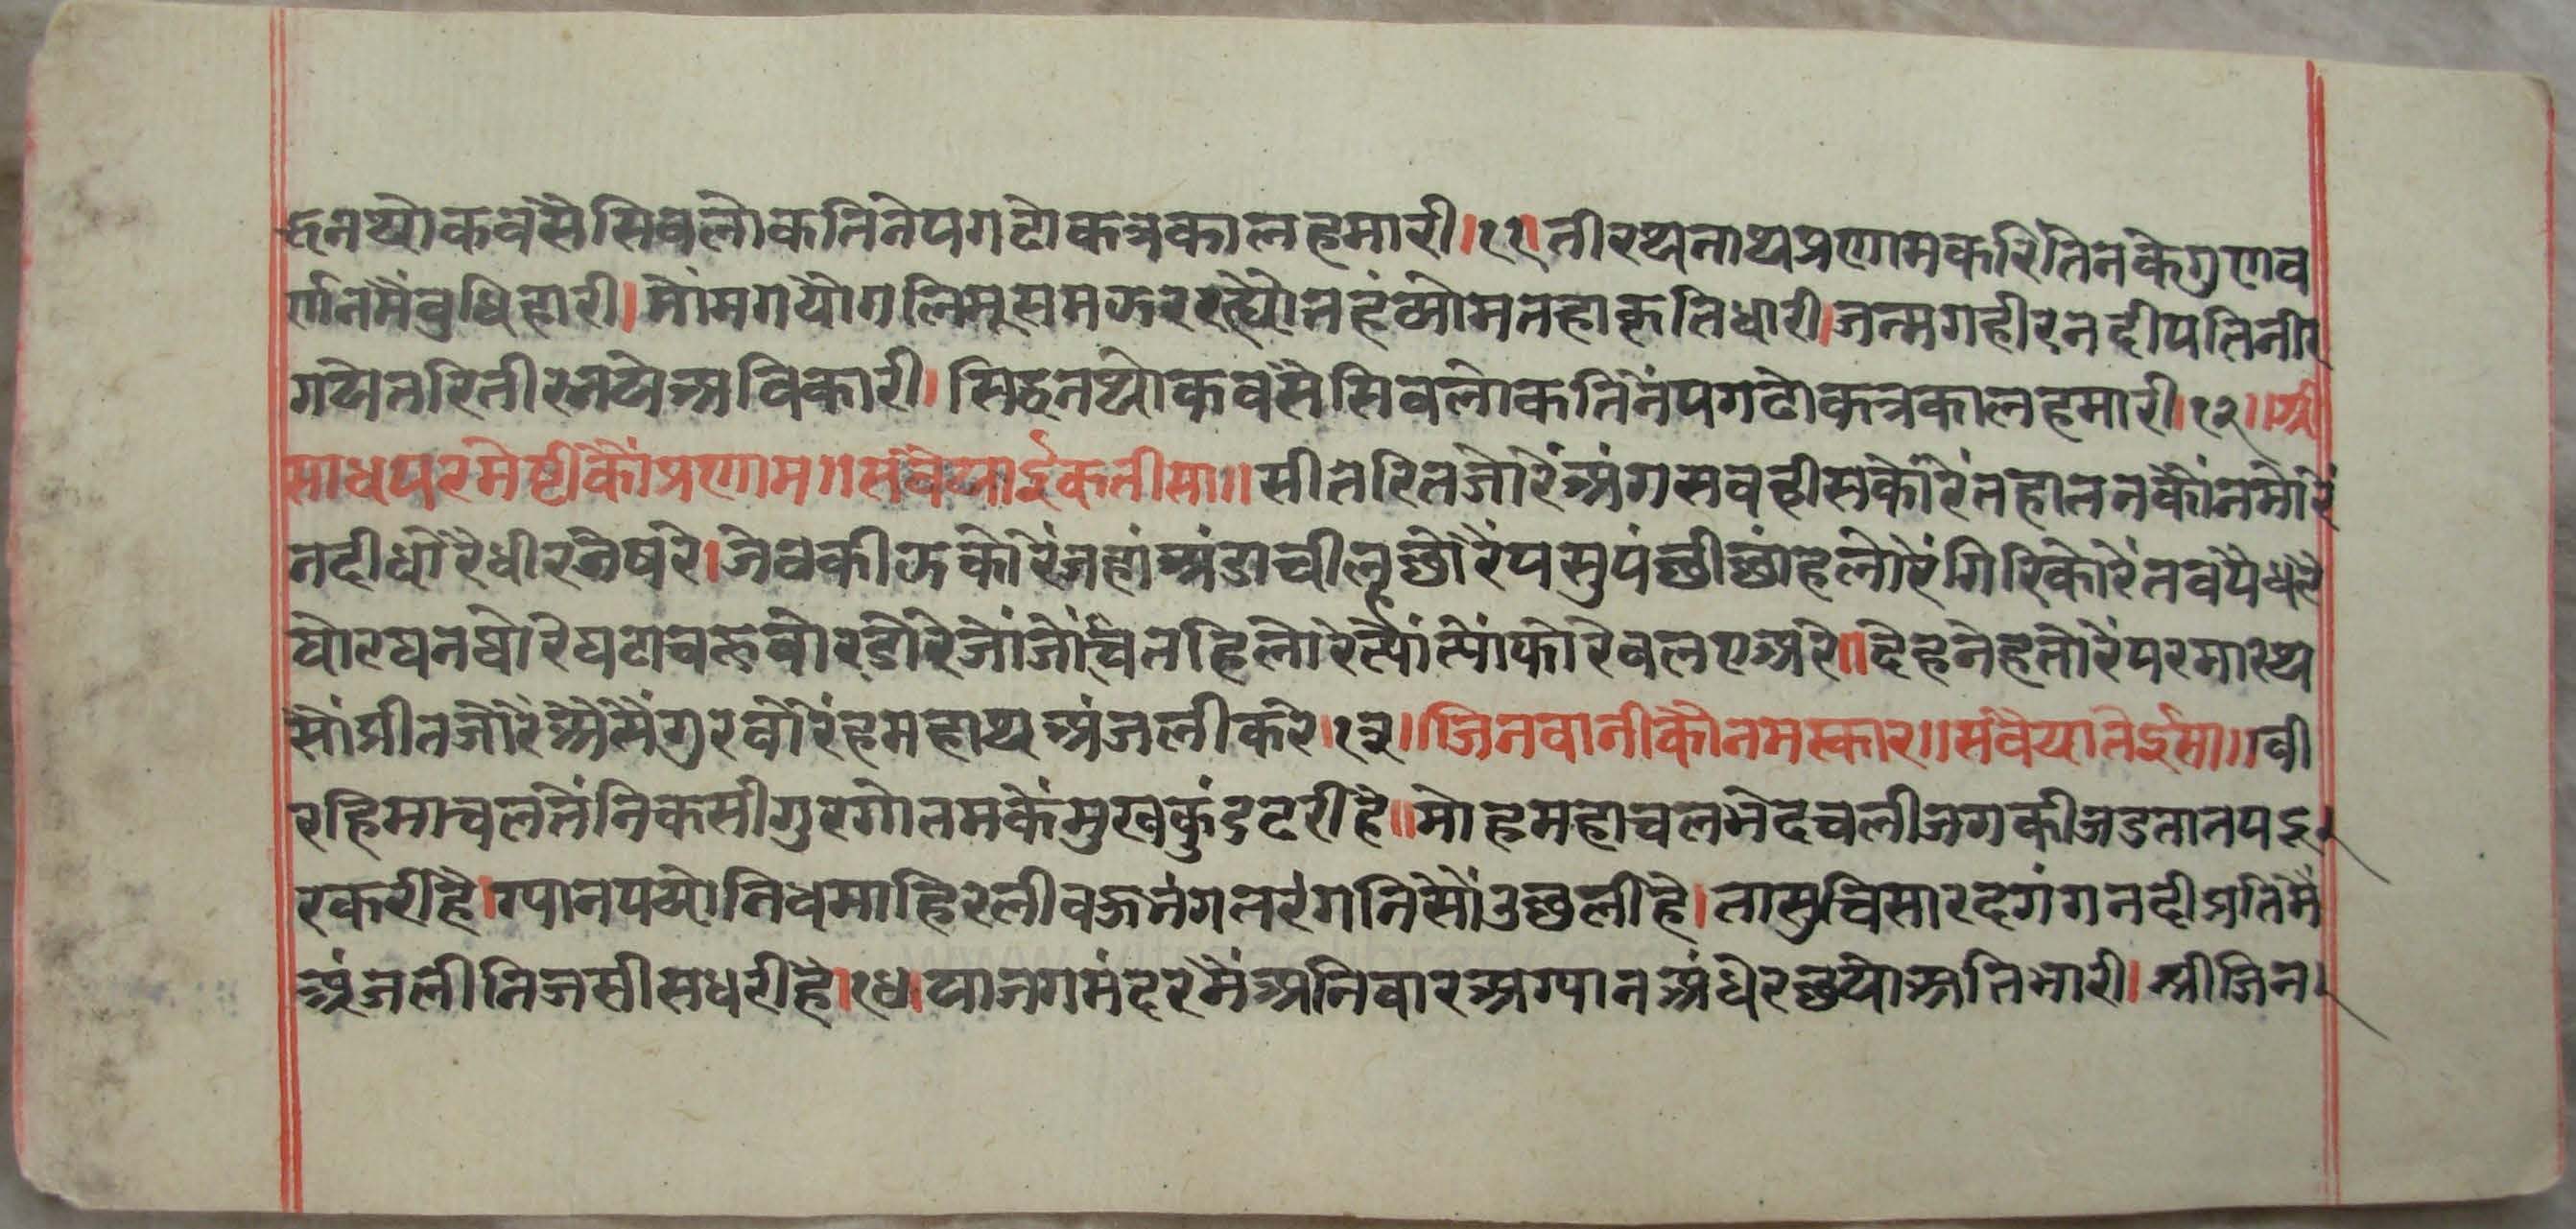 द्धनथोकवसैसिवलोकतिनेपगढोकत्रकालहमारी।११।तीरथनाथप्रणामकरितिनकेगुणव
र्णनमैंवुधिहारी।मोंमगयौगलिमूसमऊररह्यौतहंव्योमतदाकृतिधारी।जन्मगहीरनदीपतिनीर
गयेतरितीरनयेअविकारी।सिद्धनथोकवसैसिवलोकतिनैंपगढोकत्रकालहमारी।१२।।श्री
साधपरमेष्टीकौंप्रणाम।।सवैयाईकतीसा।।सीतरितजोरैंअंगसवहीसकोरैंतहातनकौंनमोरैं
नदीधोरैंधीरजेषरे।जेवकीऊकोरैंजहांअंडाचीलछोरैंपसुपंछीछांहलोरैंगिरिकोरैंतवयैधरे
घोरघनघोरेघटाचऊवोरडोरेजोंजोंचलतहिलोरेत्योंत्योंफोरेवलएअरे।।देहनेहतोरैंपरमारथ
सौंप्रीतजोरैंअैसैंगुरवोरैंहमहाथअंजलीकरे।१३।।जिनवानीकौनमस्कार।।सवैयातेईसा।।वी
रहिमाचलतैंनिकसीगुरगोतमकैंमुखकुंडढरीहै।।मोहमहाचलभेदचलीजगकीजडतातपदू
रकरीहै।ग्यानपयोनिधमाहिरलीवऊभंगतरंगनिसौंउछलीहै।तासुचिसारदगंगनदीप्रतिमैं
अंजलीनिजसीसधरीहै।१४।याजगमंदरमैंअनिवारअग्यानअंधेरछयोअतिभारी।श्रीजिन